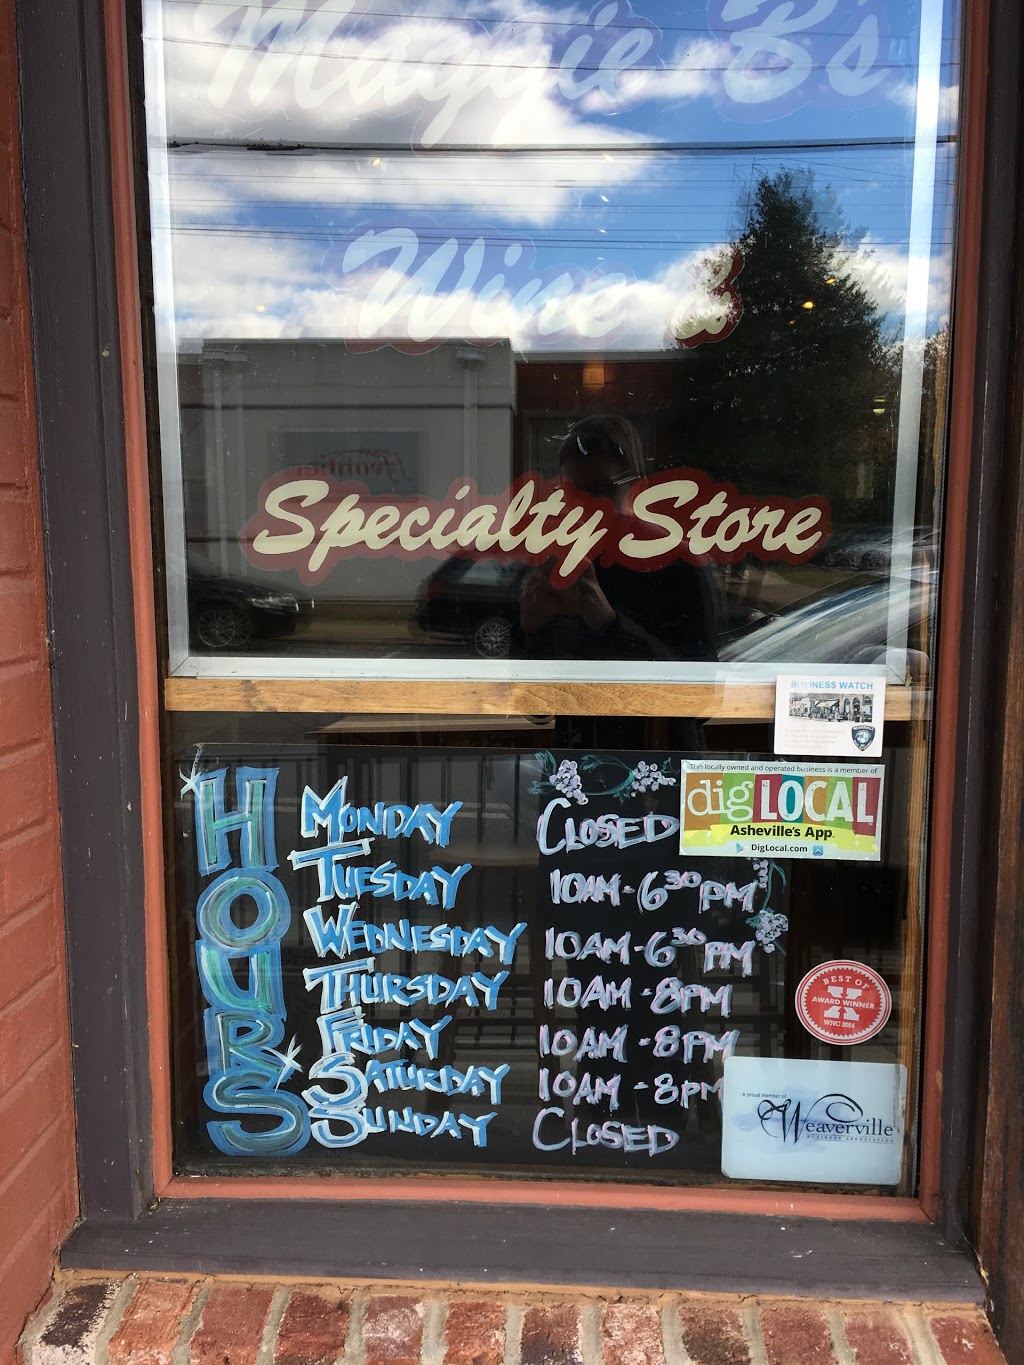 Maggie B's
Wine &
Specialty Store
BUSINESS WATCH
HOURS
MONDAY CLOSED
TUESDAY 10AM-6 30 PM
WEDNESDAY 10AM-6 30 PM
THURSDAY 10AM-8PM
FRIDAY 10AM-8PM
SATURDAY 10AM-8PM
SUNDAY CLOSED
This locally owned and operated business is a member of
dig LOCAL
Asheville's App
DigLocal.com
BEST OF
AWARD WINNER
WNC 2014
A proud member of
Weaverville
BUSINESS ASSOCIATION